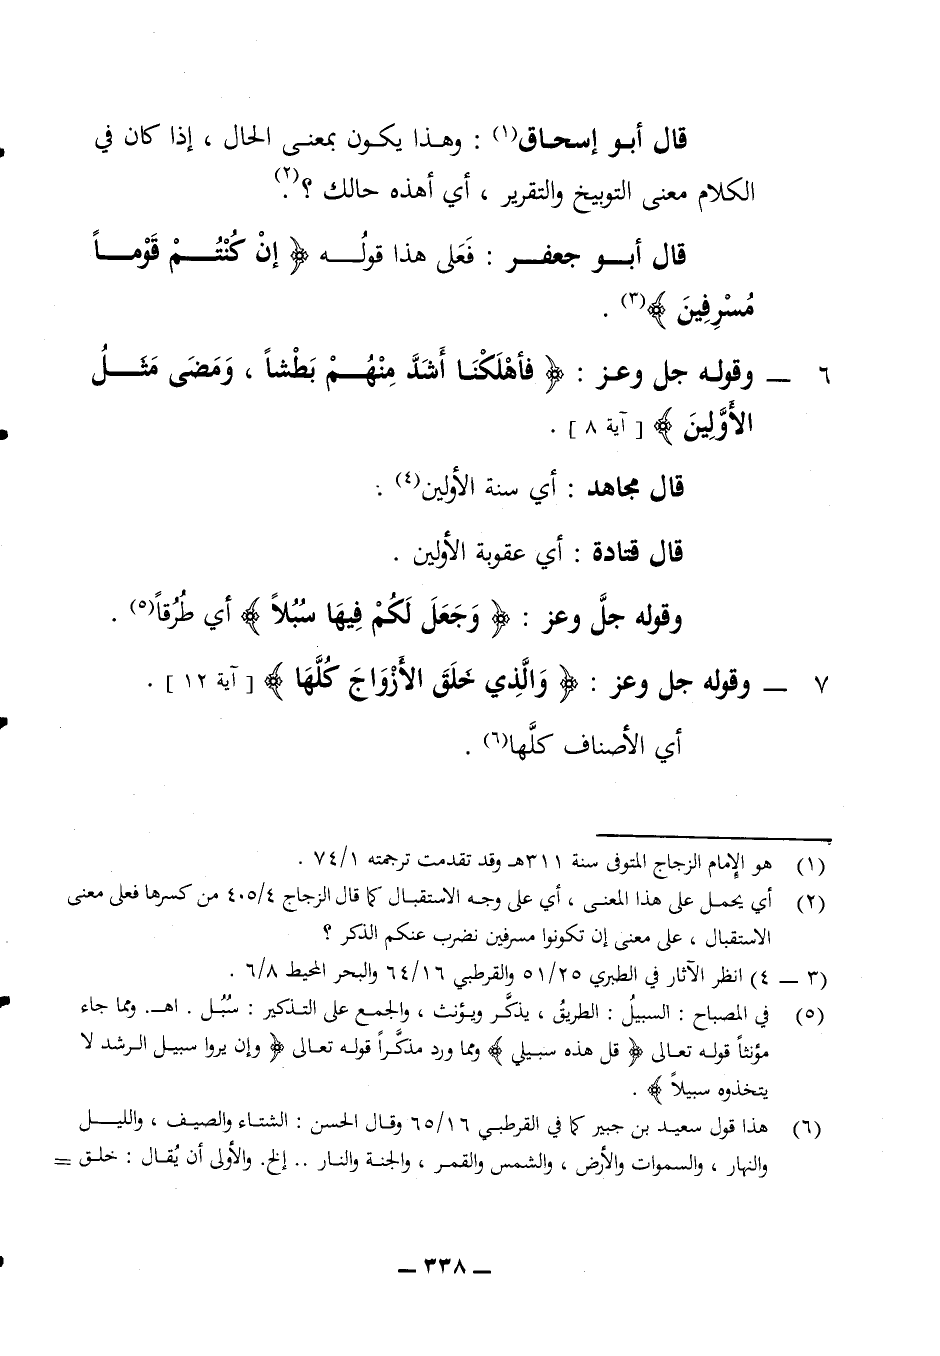 قال أبو إسحاق(١) : وهذا يكون بمعنى الحال ، إذا كان في
الكلام معنى التوبيخ والتقرير ، أي أهذه حالك ؟(٢).
قال أبو جعفر : فَعَلى هذا قولُه ﴿ إنْ كُنْتُمْ قَوْماً
مُسْرِفِينَ ﴾(٣) .
٦ ــ وقوله جل وعز : ﴿ فأهْلَكْنَا أَشَدَّ مِنْهُمْ بَطْشاً ، وَمَضَى مَثَلُ
الأَوَّلِينَ ﴾ [ آية ٨ ] .
قال مجاهد : أي سنة الأولين(٤) .
قال قتادة : أي عقوبة الأولين .
وقوله جلَّ وعز : ﴿ وَجَعَلَ لَكُمْ فِيهَا سُبُلاً ﴾ أي طُرُقاً(٥) .
٧ ــ وقوله جل وعز : ﴿ وَالَّذِي خَلَقَ الأَزْوَاجَ كُلَّهَا ﴾ [ آية ١٢ ] .
أي الأصناف كلَّها(٦) .
(١) هو الإمام الزجاج المتوفى سنة ٣١١هـ وقد تقدمت ترجمته ٧٤/١ .
(٢) أي يحمل على هذا المعنى ، أي على وجه الاستقبال كما قال الزجاج ٤٠٥/٤ من كسرها فعلى معنى
الاستقبال ، على معنى إن تكونوا مسرفين نضرب عنكم الذكر ؟
(٣ ــ ٤) انظر الآثار في الطبري ٥١/٢٥ والقرطبي ٦٤/١٦ والبحر المحيط ٦/٨ .
(٥) في المصباح : السبيلُ : الطريقُ ، يذكَّر ويؤنث ، والجمع على التذكير : سُبُل . اهـ. ومما جاء
مؤنثاً قوله تعالى ﴿ قل هذه سبيلي ﴾ ومما ورد مذكَّراً قوله تعالى ﴿ وإن يروا سبيل الرشد لا
يتخذوه سبيلاً ﴾ .
(٦) هذا قول سعيد بن جبير كما في القرطبي ٦٥/١٦ وقال الحسن : الشتاء والصيف ، والليل
والنهار ، والسموات والأرض ، والشمس والقمر ، والجنة والنار .. إلخ. والأولى أن يُقال : خلق =
ــ ٣٣٨ ــ